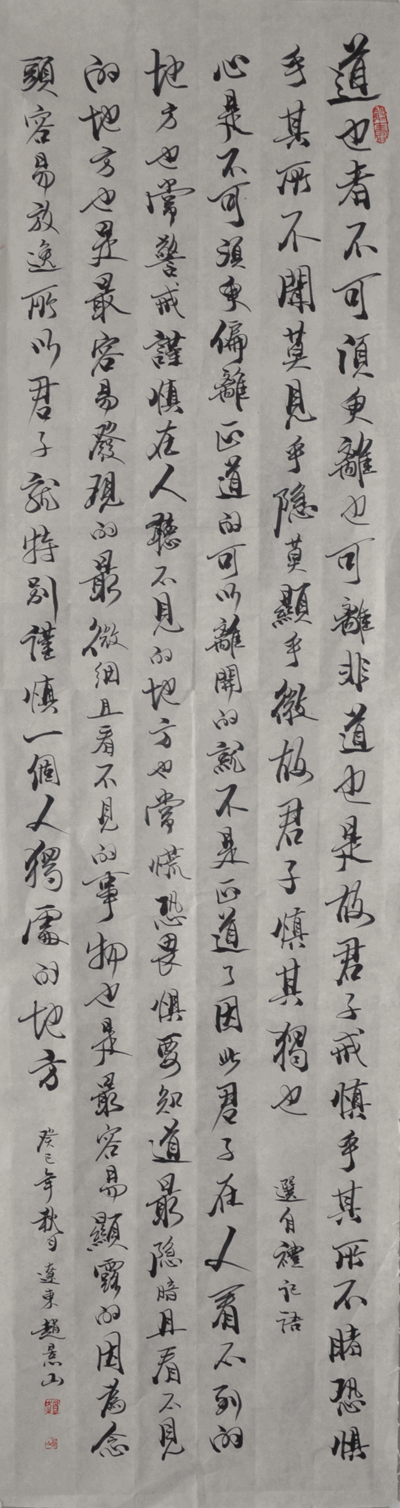 道也者不可須臾離也可離非道也是故君子戒慎乎其所不睹恐懼
乎其所不聞莫見乎隐莫顯乎微故君子慎其獨也 選自禮記語
心是不可須臾偏離正道的可以離開的就不是正道了因此君子在人看不到的
地方也常警戒謹慎在人聽不見的地方也常慌恐畏懼要知道最隐暗且看不見
的地方也是最容易發現的最微細且看不見的事物也是最容易顯露的因為念
頭容易放逸所以君子就特别謹慎一個人獨處的地方 癸巳年秋月遼東趙景山